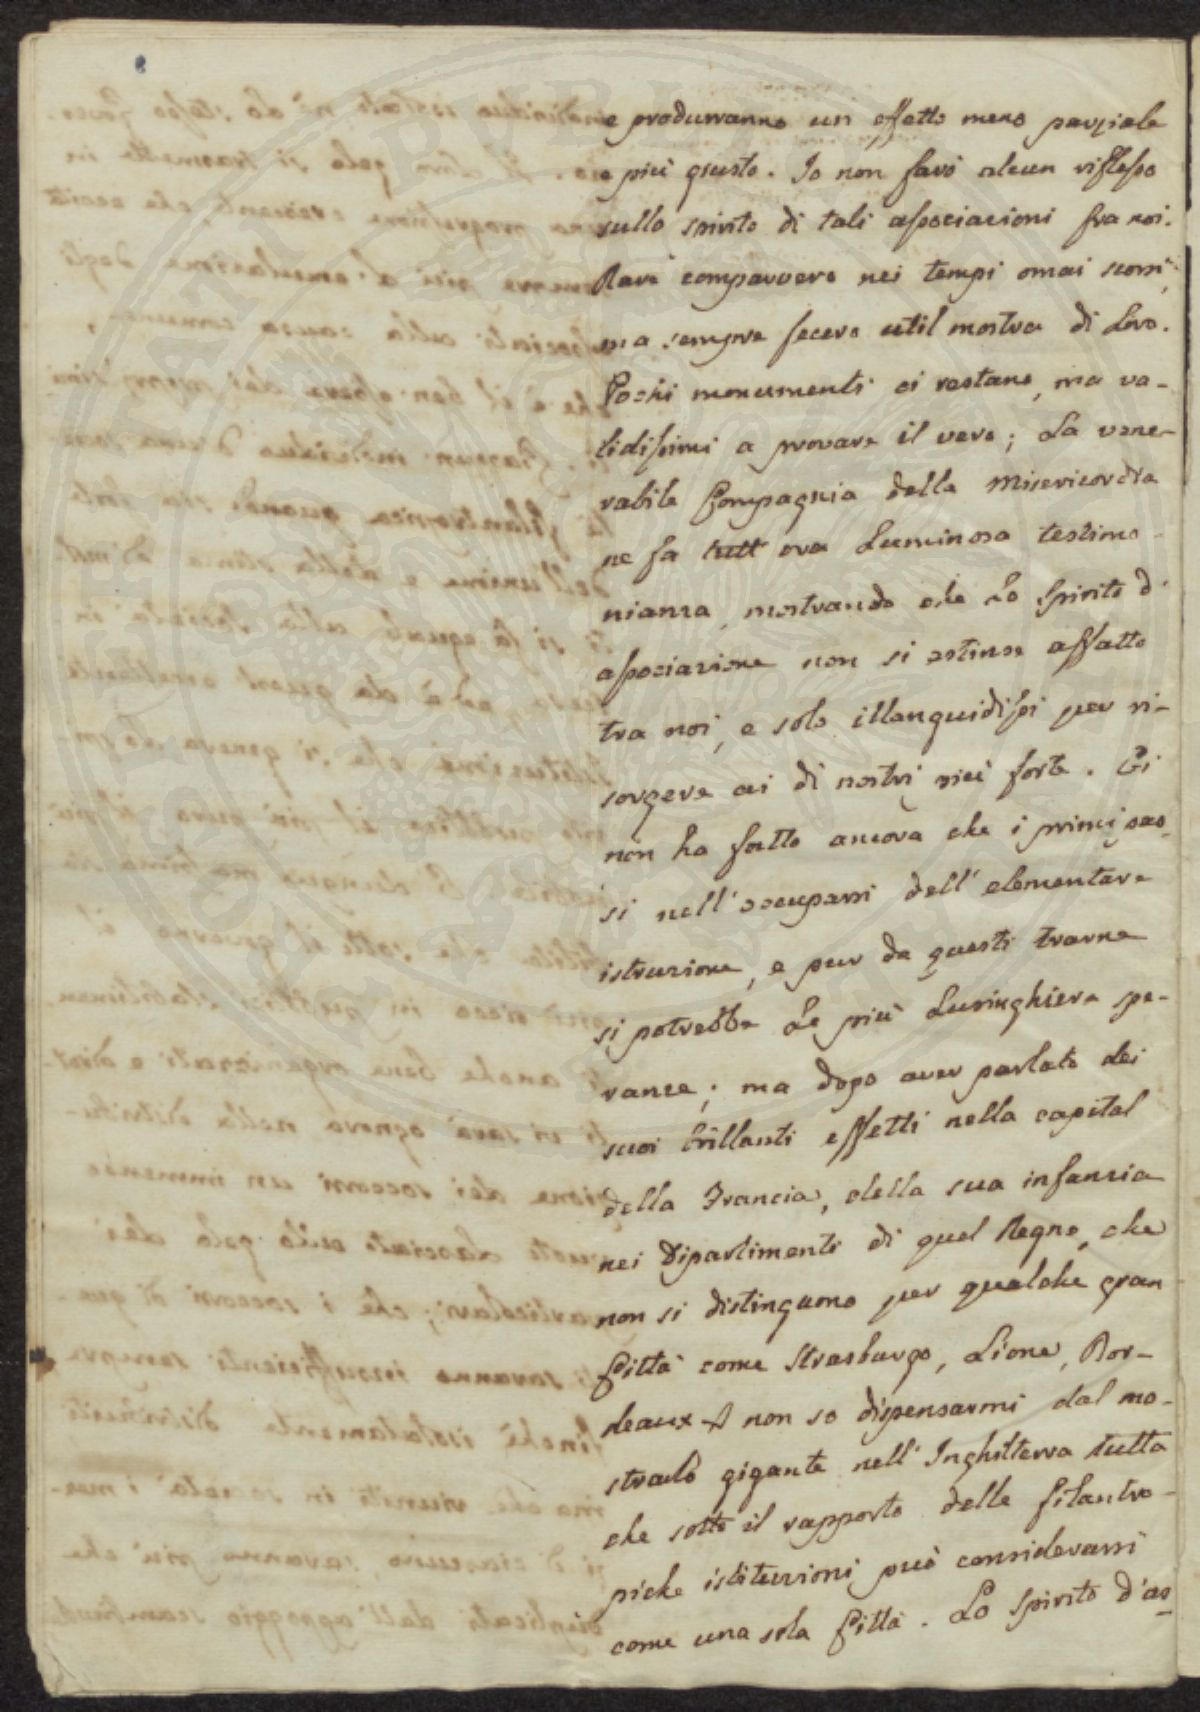 e produrranno un effetto meno parziale
e più giusto. Io non farò alcun riflesso
sullo spirito di tali associazioni fra noi.
Rare comparvero nei tempi omai scorsi,
ma sempre fecero util mostra di Loro.
Pochi monumenti ci restano, ma va-
lidissimi a provare il vero; La vene-
rabile Compagnia della Misericordia
ne fa tutt'ora Luminosa testimo-
nianza, mostrando che Lo Spirito d'
associazione non si estinse affatto
tra noi, e solo illanguidissi per ri-
sorgere ai dì nostri più forte. Ei
non ha fatto ancora che i primi pas-
si nell'occuparsi dell'elementare
istruzione, e pur da questi trarne
si potrebbe Le più Lusinghiere spe-
ranze; ma dopo aver parlato dei
suoi brillanti effetti nella capital
della Francia, della sua infanzia
nei Dipartimenti di quel Regno, che
non si distinguono per qualche gran
Città come Strasburgo, Lione, Bor-
deaux non so dispensarmi dal mo-
strarlo gigante nell'Inghilterra tutta
che sotto il rapporto delle filantro-
piche istituzioni può considerarsi
come una sola Città. Lo Spirito d'as-